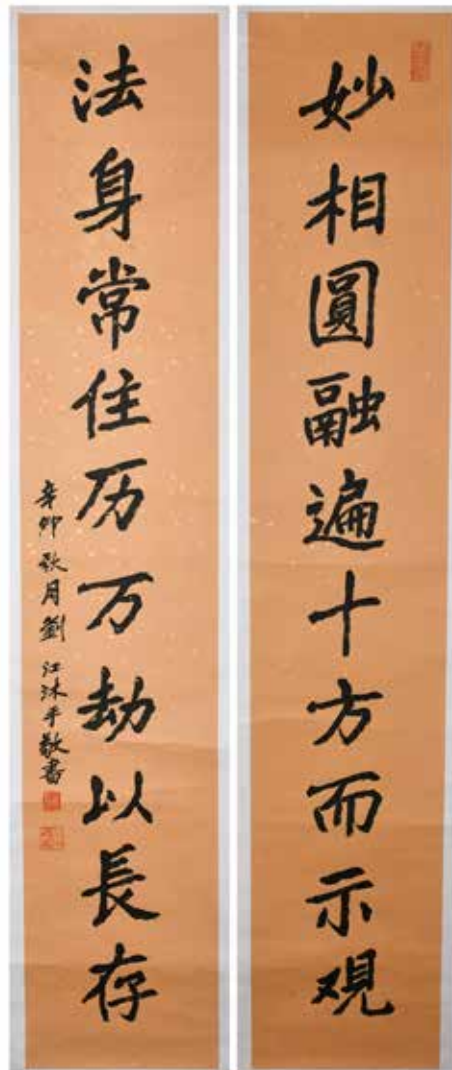 妙相圓融遍十方而示观
法身常住历万劫以長存
辛卯秋月劉江沐手敬書